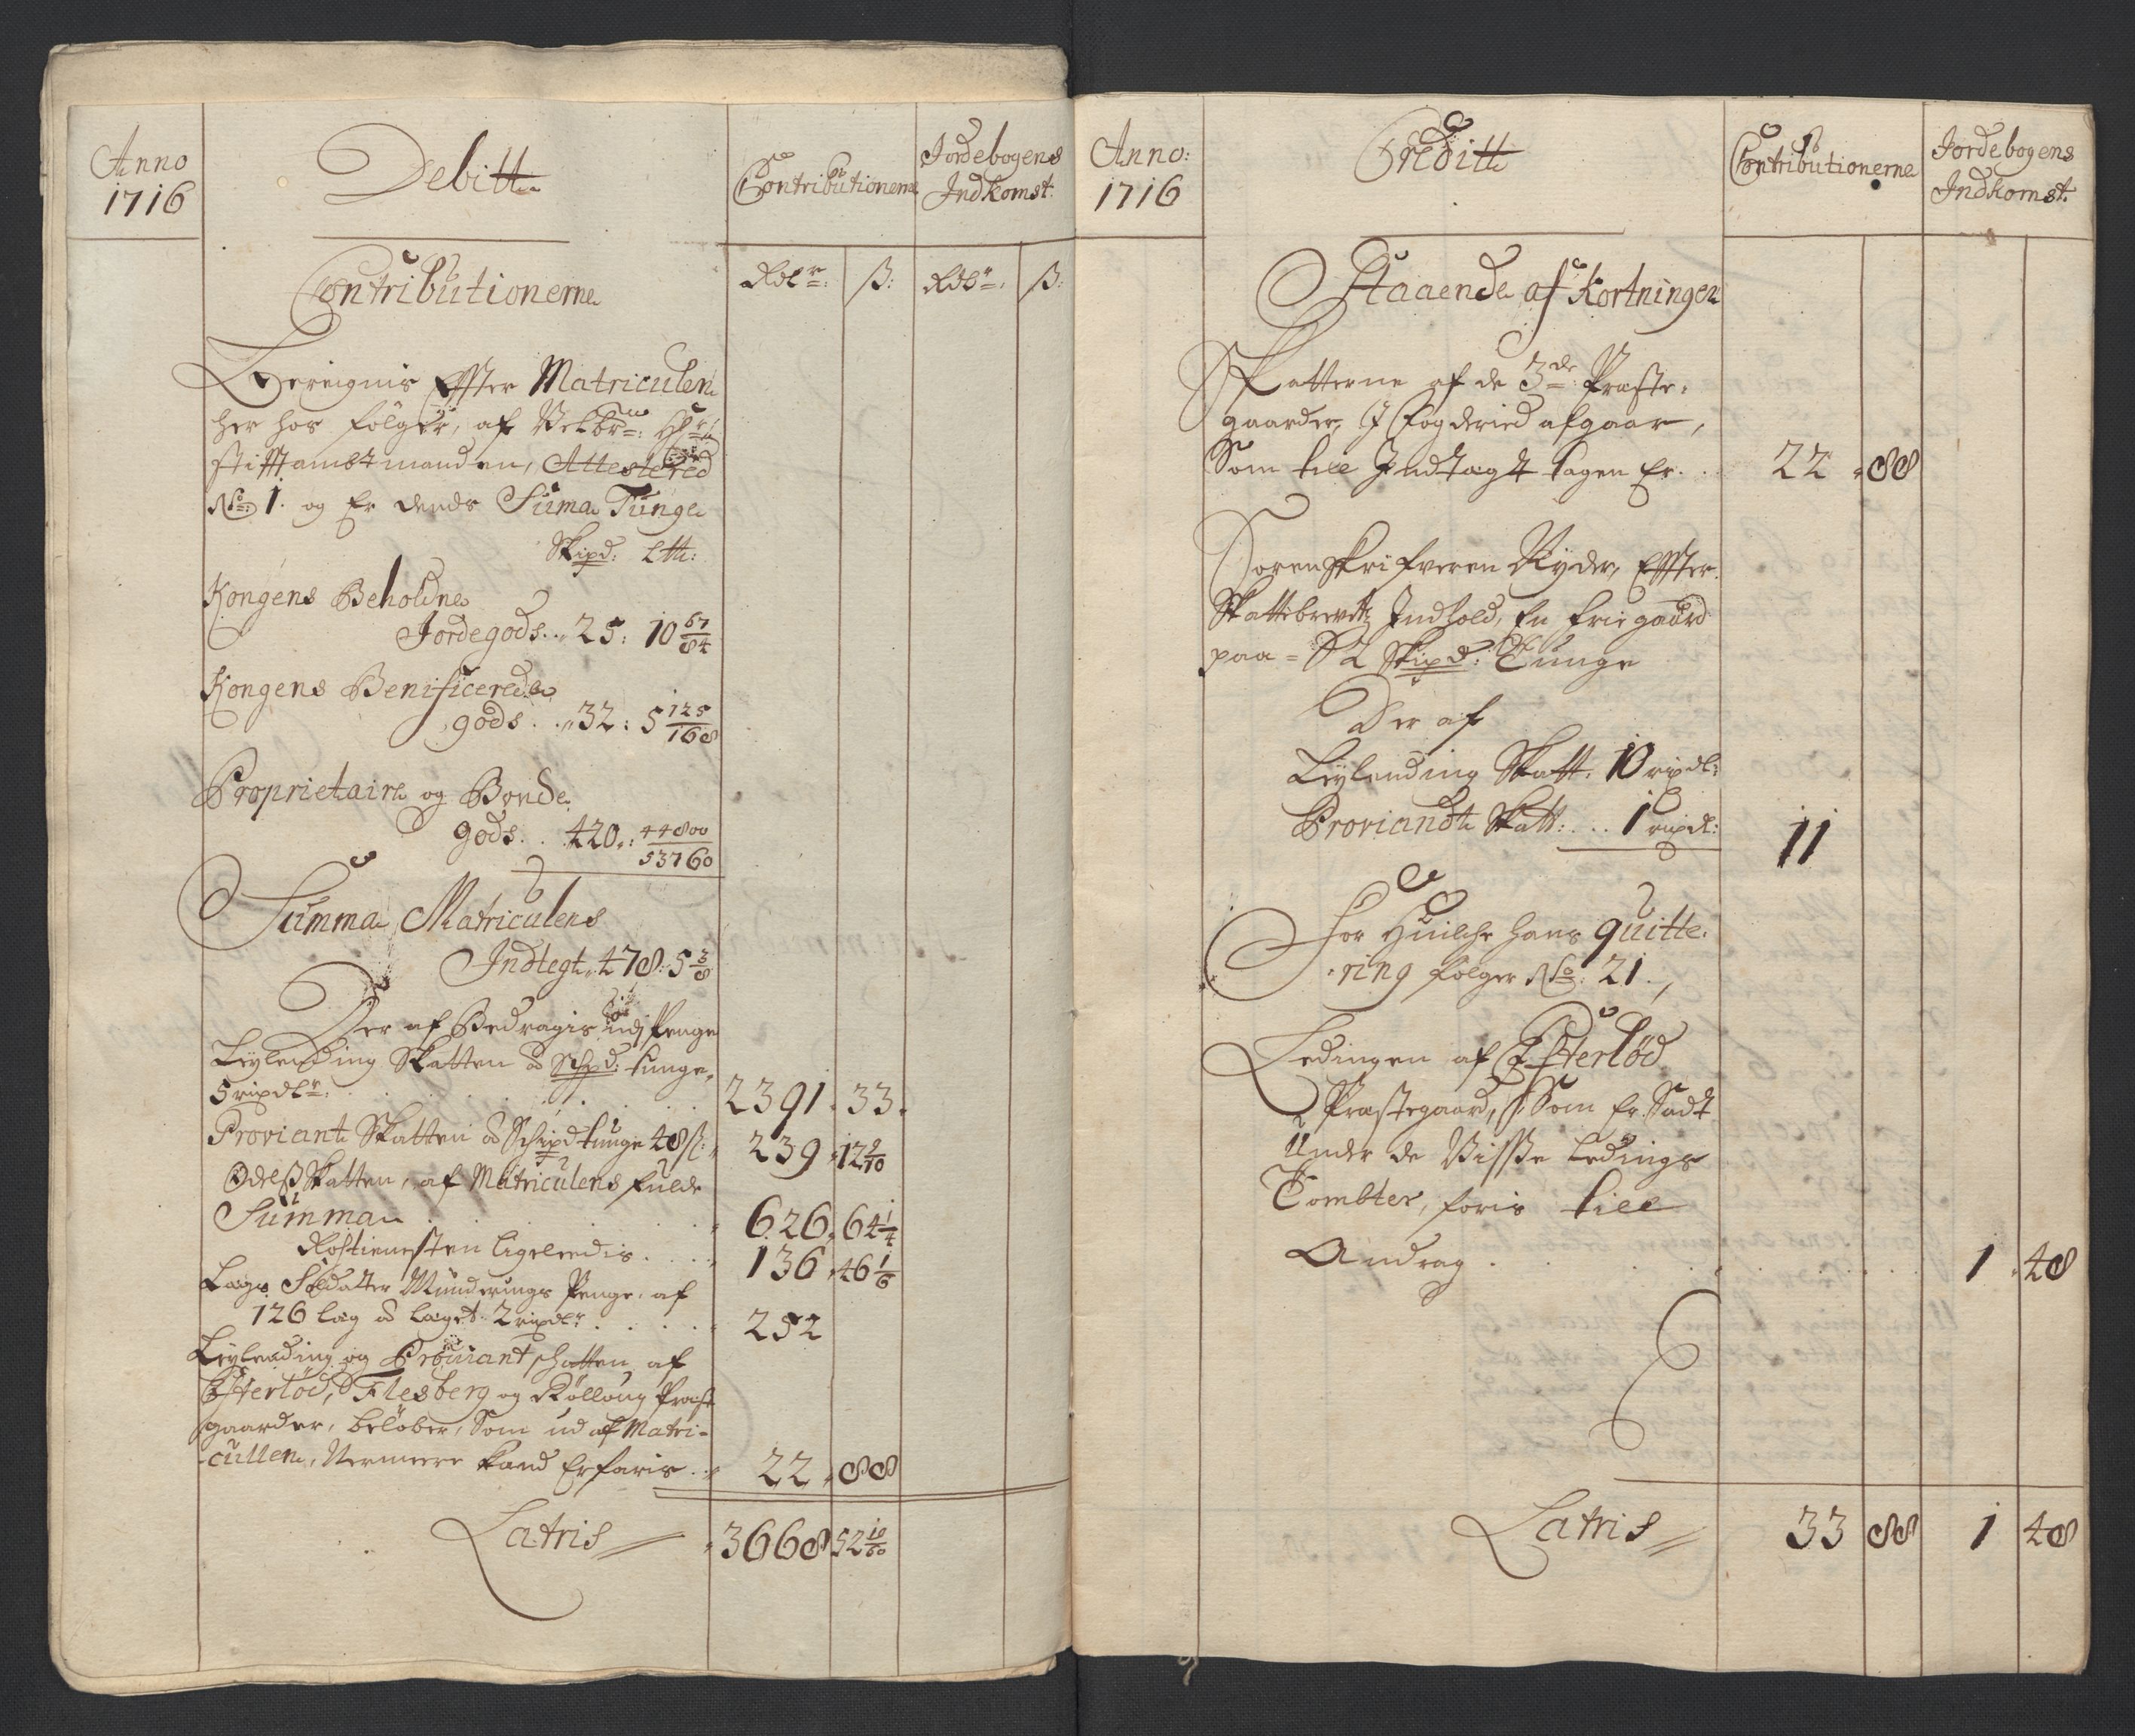 Anno
1716
Debitt
Contributionerne
Jordebogens
Indkomst.
Contributionerne
Rdlr: ß: Rdlr: ß:
Bereignis Effter Matriculen
her hos følger, af Velbrn: Hr:
Stifftambtmanden, Attestered
No: 1. og Er dends Suma Tunge
Skipd: Ltt:
Kongens Beholdne
Jordegods. 25: 10 67/84
Kongens Benificerede
gods. 32: 5 125/168
Proprietair og Bonde
gods. 420: 44800/53760
Summa Matriculens
Indtegt 478: 5 3/8
Der af Bedragis udj Penge
Leylending Skatten a Schpd: tunge
5 rixdlr: 2391. 33.
Proviant Skatten a Schipd tunge 48 ß: 239 12 9/10
Odelß Skatten, af Matriculens fulde
Summa 626 64 1/4
Rostienesten ligeleedis. 136 46 1/6
Legs Soldatter Munderings Penge, af
126 læg a læget 2 rixdlr. 252
Leylending og Proviant schatten af
Efterlød, Flesberg og Rolloug Præste
gaarder, beløber, Som ud af Matri-
cullen, Nermere kand Erfaris. 22 88
Latris 3668 52 19/60
Anno:
1716
Creditt
Contributionerne
Jordebogens
Indkomst.
Staaende afkortninger
Skatterne af de 3de: Præste-
gaarder, J Fogderied afgaar,
Som till Indtagt tagen Er. 22 88
Sorenskrifveren Ryder, Effter
Skattebrevetz Indhold, En frie gaard
paa = 2 Skipd: Tunge
Der af
Leylending Skatt. 10 rixdl:
Proviandt Skatt: 1 rixdl: 11
For Huilche hans quitte-
ring følger No: 21.
Ledingen af Efterlød
Præstegaard, Som Er Sadt
Under de Visße Ledings
Tombter, føris till
Andrag 1 48
Latris 33 88 1 48